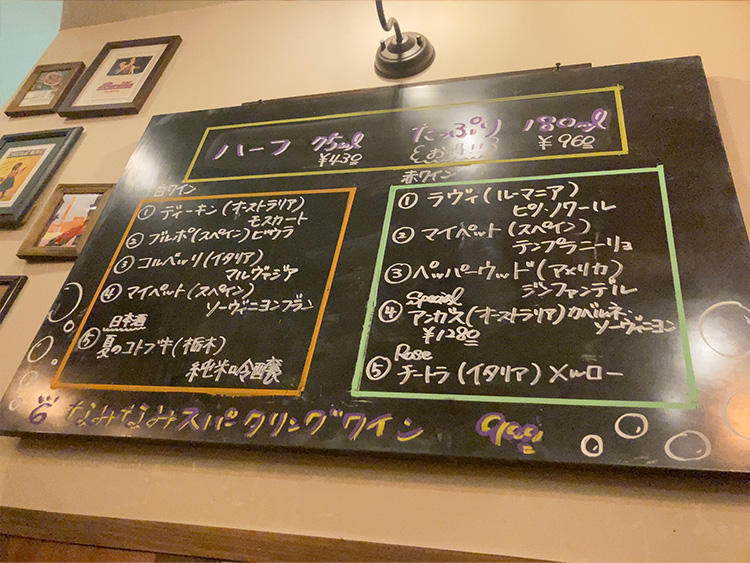 ハーフ 75ml たっぷり 180ml
¥430 ¥960
白ワイン
① ディーキン(オーストラリア)
モスカート
② ブルポ(スペイン)ビウラ
③ コルベッリ(イタリア)
マルヴァジア
④ マイペット(スペイン)
ソーヴィニヨンブラン
日本酒
⑤ 夏のコトブキ(栃木)
純米吟醸
赤ワイン
① ラヴィ(ルーマニア)
ピノ・ノワール
② マイペット(スペイン)
テンプラニーリョ
③ ペッパーウッド(アメリカ)
ジンファンデル
Special
④ アンガス(オーストラリア)カベルネ・
ソーヴィニヨン
¥1280
Rose
⑤ チートラ(イタリア)メルロー
なみなみスパークリングワイン 900